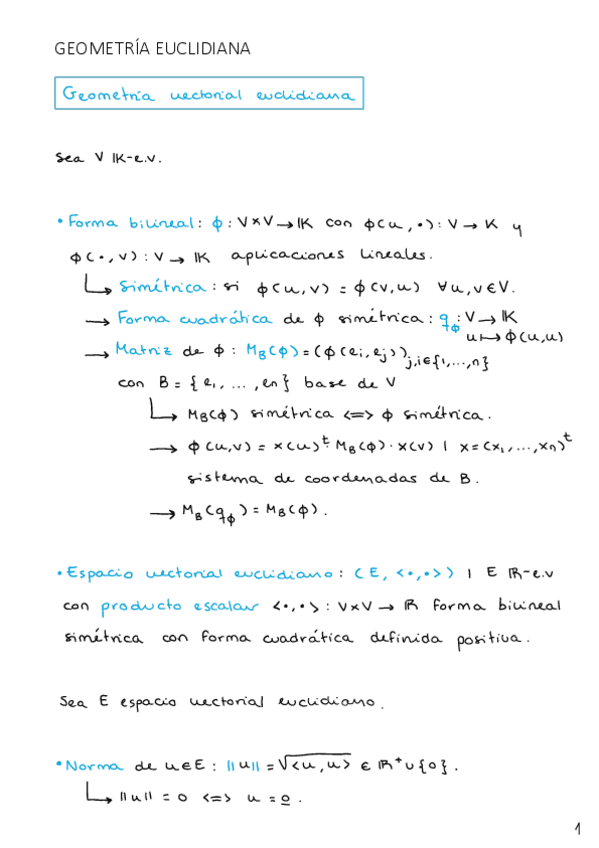 GEOMETRÍA EUCLIDIANA
Geometría vectorial euclidiana
Sea V IK-e.v.
• Forma bilineal: ϕ: V×V → IK con ϕ(u, •): V → K y
ϕ(•, v): V → IK aplicaciones lineales.
↳ Simétrica: si ϕ(u, v) = ϕ(v, u) ∀u, v ∈ V.
→ Forma cuadrática de ϕ simétrica: q_ϕ: V → IK
u ↦ ϕ(u, u)
→ Matriz de ϕ: M_B(ϕ) = (ϕ(e_i, e_j))_{j,i∈{1,...,n}}
con B = {e_1, ..., e_n} base de V
↳ M_B(ϕ) simétrica <=> ϕ simétrica.
→ ϕ(u,v) = x(u)^t · M_B(ϕ) · x(v) | x = (x_1, ..., x_n)^t
sistema de coordenadas de B.
→ M_B(q_ϕ) = M_B(ϕ).
• Espacio vectorial euclidiano: (E, <•,•>) | E IR-e.v
con producto escalar <•,•>: V×V → IR forma bilineal
simétrica con forma cuadrática definida positiva.
Sea E espacio vectorial euclidiano.
• Norma de u ∈ E: ||u|| = √<u, u> ∈ IR⁺ ∪ {0}.
↳ ||u|| = 0 <=> u = 0̲.
1